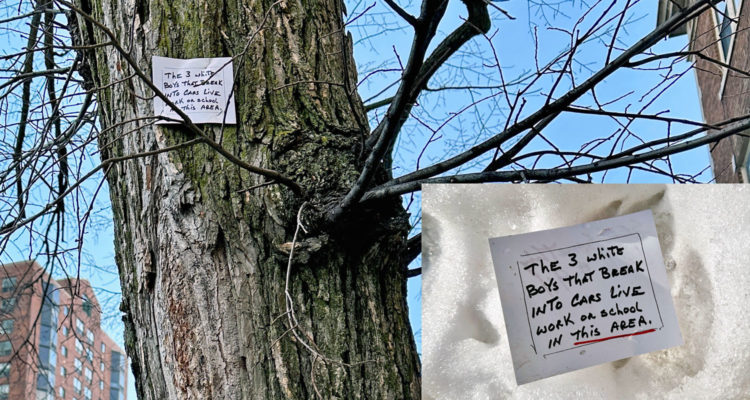 THE 3 WHITE
BOYS THAT BREAK
INTO CARS LIVE
WORK OR SCHOOL
IN THIS AREA.
THE 3 WHITE
BOYS THAT BREAK
INTO CARS LIVE
WORK OR SCHOOL
IN THIS AREA.